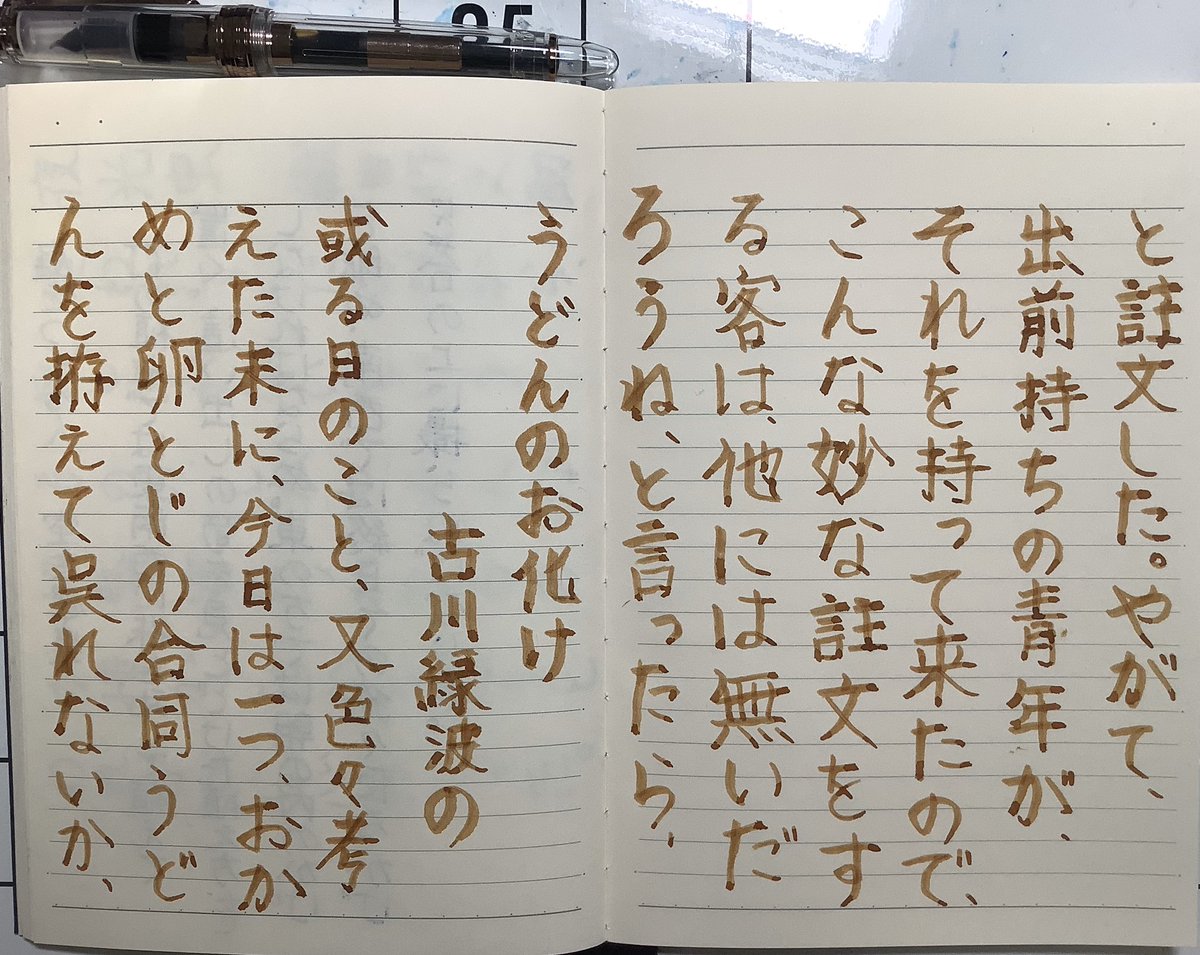 うどんのお化け
古川緑波の
或る日のこと、又色々考
えた末に、今日は一つ、おか
めと卵とじの合同うど
んを拵えて呉れないか、
と註文した。やがて、
出前持ちの青年が、
それを持って来たので、
こんな妙な註文をす
る客は、他には無いだ
ろうね、と言ったら、